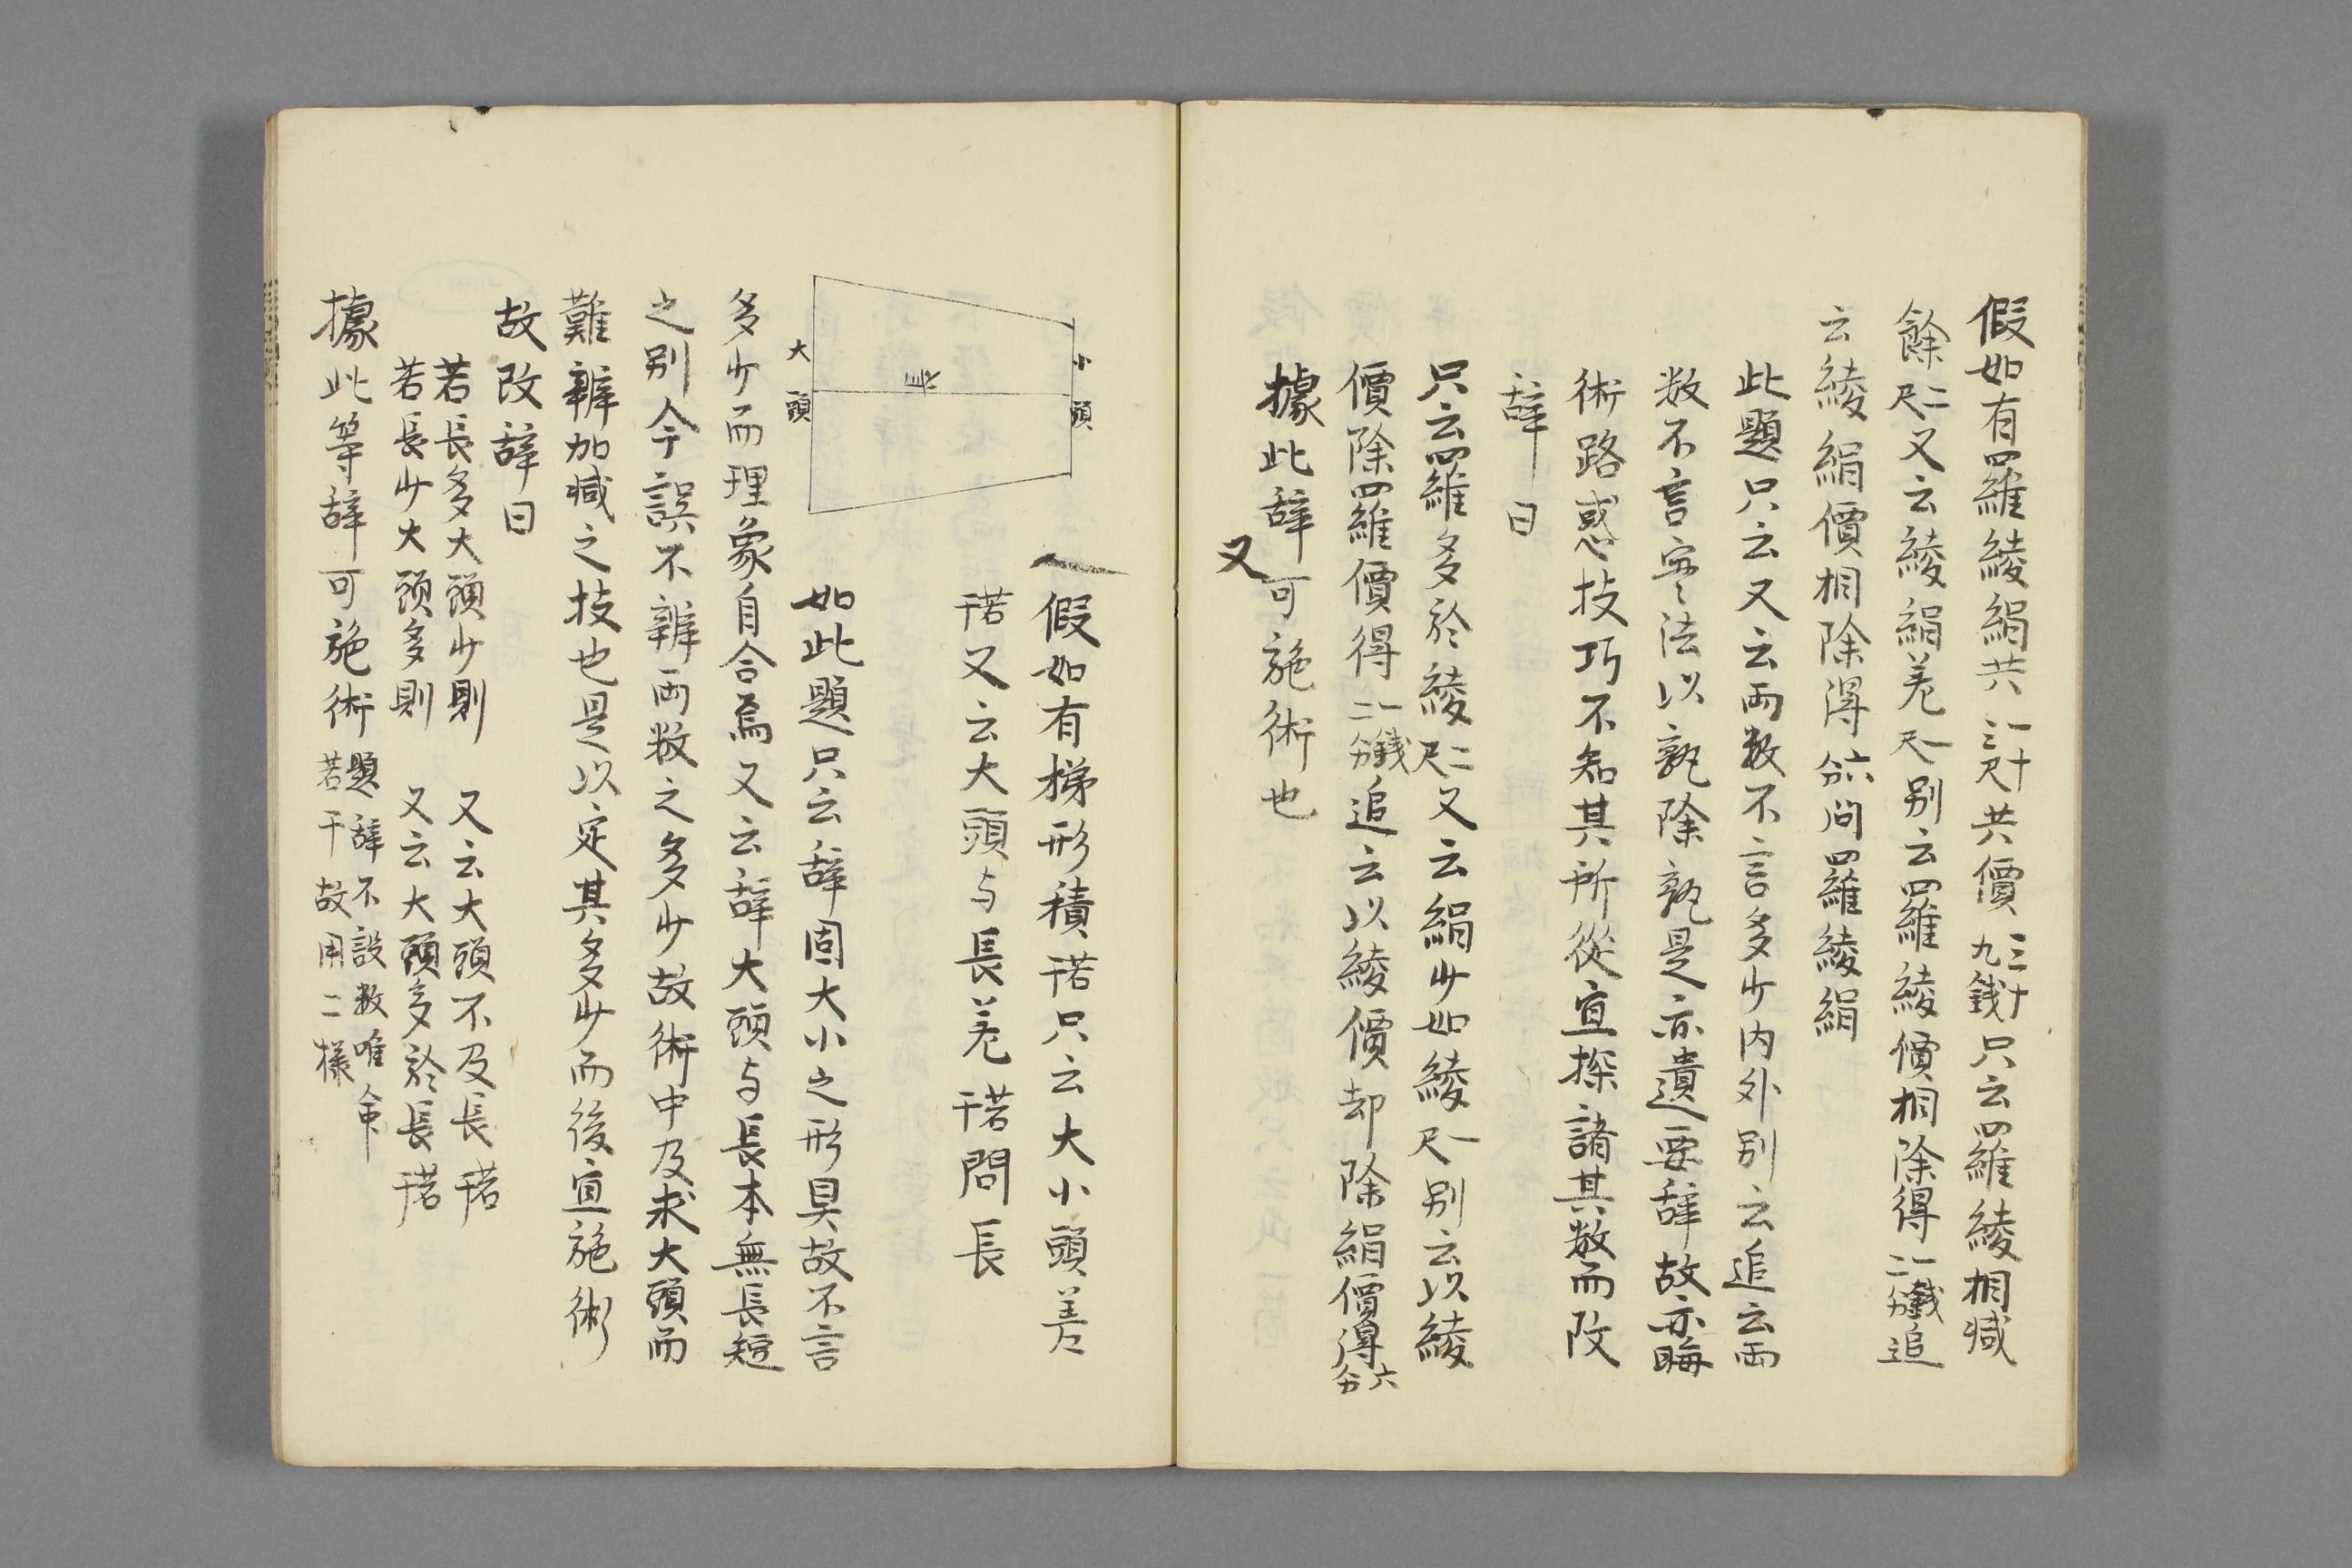 假如有羅綾絹共一十三尺共價三十九錢只云羅綾相減
餘二尺又云綾絹差一尺別云羅綾價相除得一錢二分追
云綾絹價相除得六分問羅綾絹
此題只云又云両数不言多少内外別云追云両
数不言実法以孰除孰是亦遺要辞故亦晦
術路惑技巧不知其所從宜探諸其数而改
辞曰
只云羅多於綾二尺又云絹少如綾一尺別云以綾
價除羅價得一錢二分追云以綾價却除絹價得六分
據此辞可施術也
又
假如有梯形積若干只云大小頭差
若干又云大頭与長差若干問長
小頭
長
大頭
如此題只云辞固大小之形具故不言
多少而理象自合焉又云辞大頭与長本無長短
之別今誤不辨両数之多少故術中及求大頭而
難辨加減之技也是以定其多少而後宜施術
故改辞曰
若長多大頭少則 又云大頭不及長若干
若長少大頭多則 又云大頭多於長若干
據此等辞可施術題辞不設数唯命若干故用二様